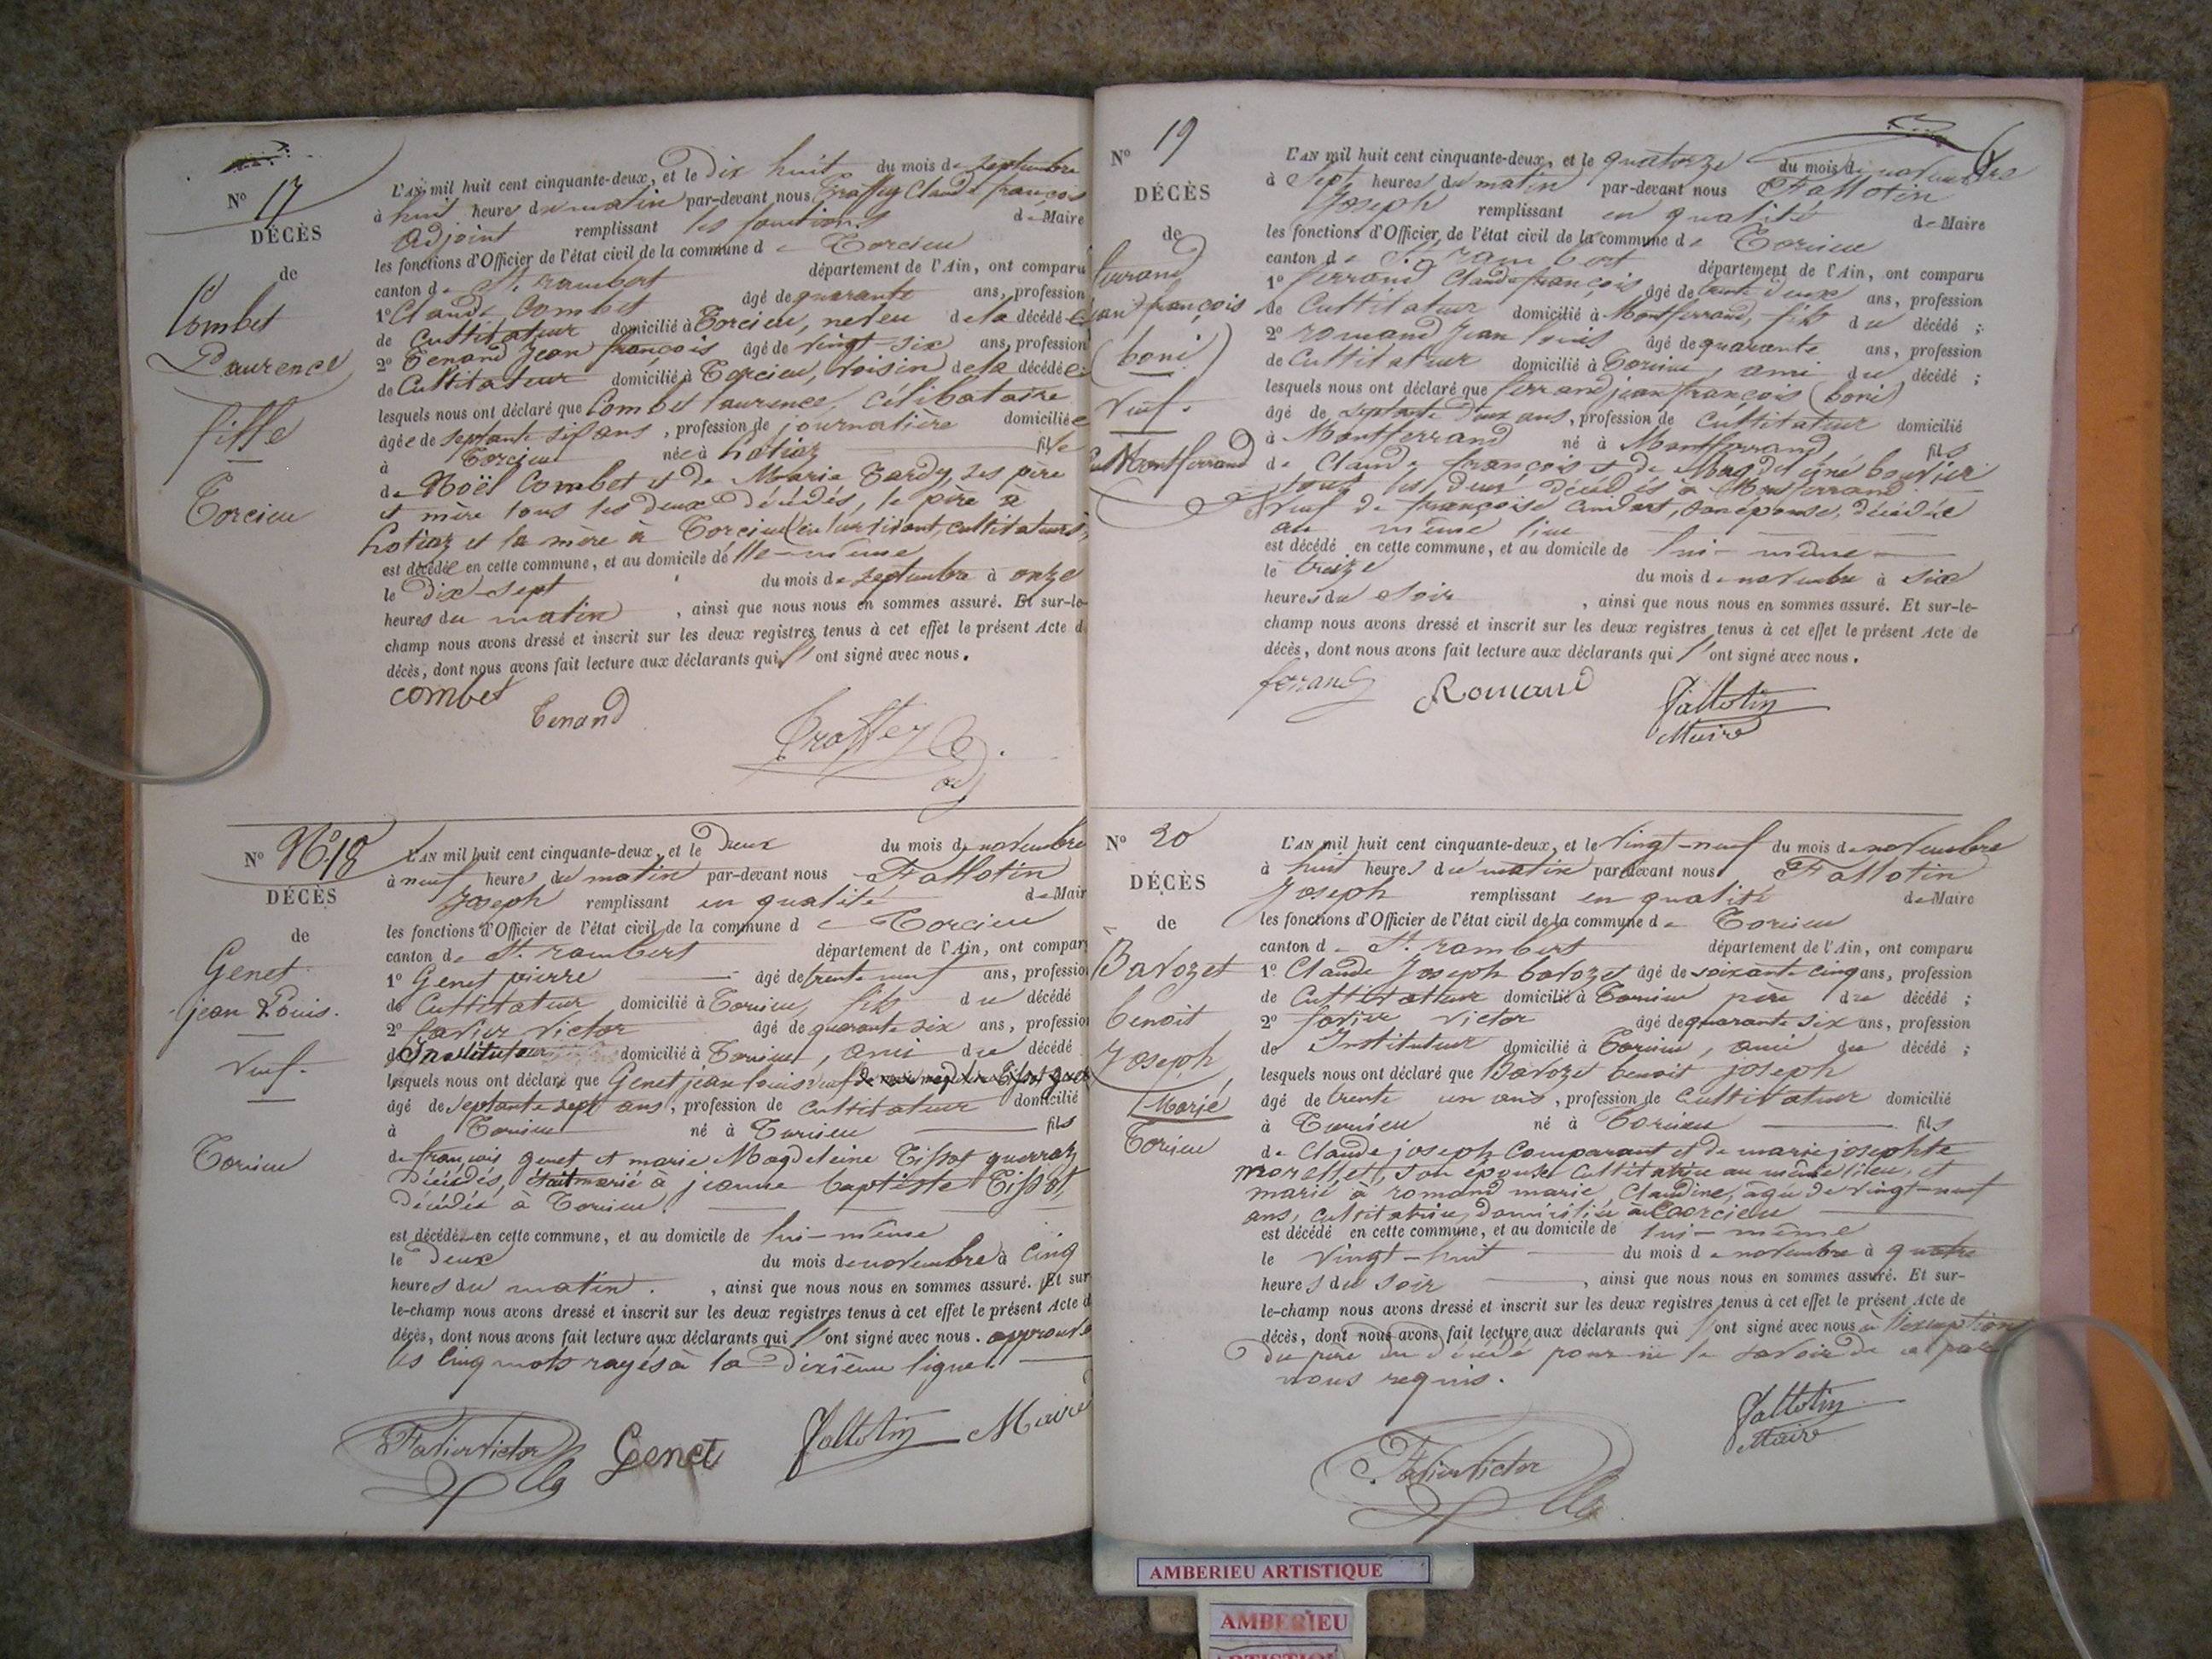 N° 17
DÉCÈS
de
Combet
Laurence
fille
Torcieu
L'AN mil huit cent cinquante-deux, et le Dix huit du mois de septembre
à huit heures du matin par-devant nous Claude françois
Adjoint remplissant les fonctions de Maire
les fonctions d'Officier de l'état civil de la commune de Torcieu
canton de St. rambert département de l'Ain, ont comparu
1° Claude Combet âgé de quarante ans, profession
de Cultivateur domicilié à Torcieu, neveu de la décédée
2° Tenand Jean françois âgé de vingt six ans, profession
de Cultivateur domicilié à Torcieu, voisin de la décédée
lesquels nous ont déclaré que Combet laurence, célibataire
âgée de septante six ans, profession de journalière domiciliée
à Torcieu née à hotiaz fille
de Noël Combet et de Marie Tardy, ses père
et mère tous les deux décédés, le père à
hotiaz et la mère à Torcieu (en leur vivant, cultivateurs)
est décédée en cette commune, et au domicile d'elle-même
le Dix-sept du mois de septembre à onze
heures du matin, ainsi que nous nous en sommes assuré. Et sur-le-
champ nous avons dressé et inscrit sur les deux registres tenus à cet effet le présent Acte d
décès, dont nous avons fait lecture aux déclarants qui l'ont signé avec nous.
combet
Tenand
N° N°18
DÉCÈS
de
Genet
jean Louis.
veuf.
Torcieu
L'AN mil huit cent cinquante-deux, et le Deux du mois de novembre
à neuf heures du matin par-devant nous Vallotin
Joseph remplissant en qualité de Mair
les fonctions d'Officier de l'état civil de la commune de Torcieu
canton de St. rambert département de l'Ain, ont compar
1° Genet pierre âgé de trente neuf ans, profession
de Cultivateur domicilié à Torcieu, fils du décédé
2° favier Victor âgé de quarante six ans, profession
d'Instituteur domicilié à Torcieu, ami du décédé
lesquels nous ont déclaré que Genet jean louis veuf
âgé de septante sept ans, profession de Cultivateur domicilié
à Torcieu né à Torcieu fils
de françois genet et marie Magdeleine Tissot guerraz
Décédés, était marié à jeanne baptiste Tissot,
Décédée à Torcieu.
est décédé en cette commune, et au domicile de lui-même
le Deux du mois de novembre à Cinq
heures du matin., ainsi que nous nous en sommes assuré. Et sur
le-champ nous avons dressé et inscrit sur les deux registres tenus à cet effet le présent Acte d
décès, dont nous avons fait lecture aux déclarants qui l'ont signé avec nous. approuvé
les Cinq mots rayés à la Dixième ligne.
Favier Victor Genet Vallotin Maire
N° 19
DÉCÈS
de
ferrand
jean françois
(boni)
Veuf.
Montferrand
L'AN mil huit cent cinquante-deux, et le quatorze du mois de novembre
à Sept heures du matin par-devant nous Vallotin
Joseph remplissant en qualité de Maire
les fonctions d'Officier de l'état civil de la commune de Torcieu
canton de St. rambert département de l'Ain, ont comparu
1° ferrand Claude françois âgé de trente deux ans, profession
de Cultivateur domicilié à Montferrand, fils du décédé ;
2° romand Jean louis âgé de quarante ans, profession
de Cultivateur domicilié à Torcieu, ami du décédé ;
lesquels nous ont déclaré que ferrand jean françois (boni)
âgé de septante Deux ans, profession de Cultivateur domicilié
à Montferrand né à Montferrand, fils
de Claude françois et de bouvier
tous les deux décédés à Montferrand
Veuf de françoise son épouse, décédée
au même lieu
est décédé en cette commune, et au domicile de lui-même
le treize du mois de novembre à six
heures du soir, ainsi que nous nous en sommes assuré. Et sur-le-
champ nous avons dressé et inscrit sur les deux registres tenus à cet effet le présent Acte de
décès, dont nous avons fait lecture aux déclarants qui l'ont signé avec nous.
ferand Romand Vallotin
Maire
N° 20
DÉCÈS
de
Bavozet
benoit
Joseph
Marié
Torcieu
L'AN mil huit cent cinquante-deux, et le Vingt-neuf du mois de novembre
à huit heures du matin par-devant nous Vallotin
Joseph remplissant en qualité de Maire
les fonctions d'Officier de l'état civil de la commune de Torcieu
canton de St. rambert département de l'Ain, ont comparu
1° Claude Joseph bavozet âgé de soixante cinq ans, profession
de Cultivateur domicilié à Torcieu père du décédé ;
2° favier Victor âgé de quarante six ans, profession
de Instituteur domicilié à Torcieu, ami du décédé ;
lesquels nous ont déclaré que Bavozet benoit joseph
âgé de trente un ans, profession de Cultivateur domicilié
à Torcieu né à Torcieu fils
de Claude joseph Comparant et de marie josephte
morellet, son épouse Cultivatrice au même lieu, et
marié à romand marie Claudine, âgée de vingt-neuf
ans, cultivatrice, domiciliée à Torcieu
est décédé en cette commune, et au domicile de lui-même
le vingt-huit du mois de novembre à quatre
heures du soir, ainsi que nous nous en sommes assuré. Et sur-
le-champ nous avons dressé et inscrit sur les deux registres tenus à cet effet le présent Acte de
décès, dont nous avons fait lecture aux déclarants qui l'ont signé avec nous à l'exception
Du père du décédé pour ne le savoir de ce par
nous requis.
Vallotin
Maire
Favier Victor
AMBERIEU ARTISTIQUE
AMBERIEU
ARTISTIQUE